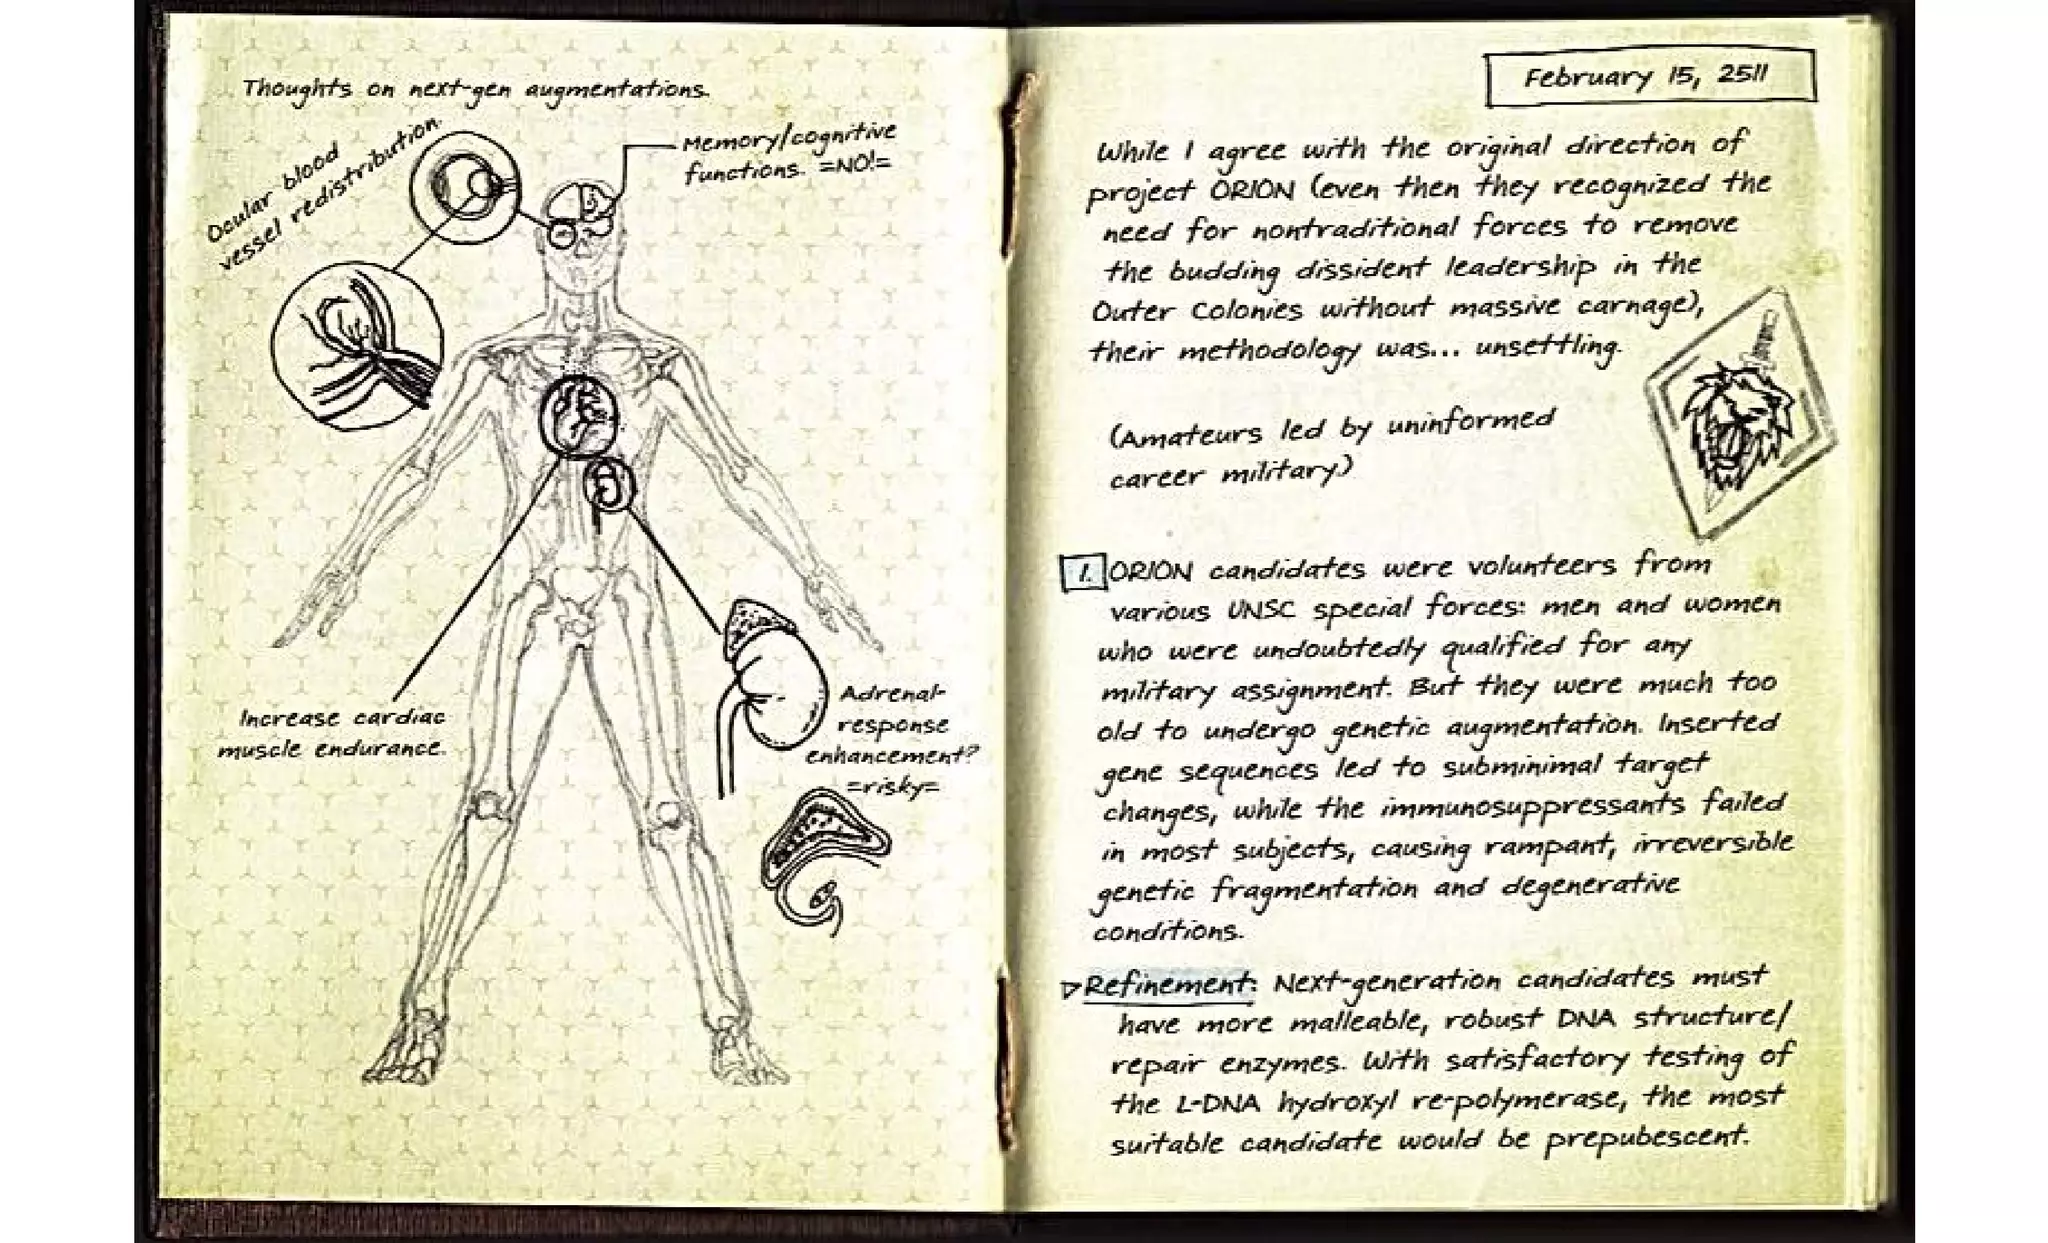 Thoughts on next-gen augmentations.
Ocular blood
vessel redistribution.
Memory/cognitive
functions. =NO!=
Increase cardiac
muscle endurance.
Adrenal-
response
enhancement?
=risky=
February 15, 2511
While I agree with the original direction of
project ORION (even then they recognized the
need for nontraditional forces to remove
the budding dissident leadership in the
Outer Colonies without massive carnage),
their methodology was... unsettling.
(Amateurs led by uninformed
career military)
1. ORION candidates were volunteers from
various UNSC special forces: men and women
who were undoubtedly qualified for any
military assignment. But they were much too
old to undergo genetic augmentation. Inserted
gene sequences led to subminimal target
changes, while the immunosuppressants failed
in most subjects, causing rampant, irreversible
genetic fragmentation and degenerative
conditions.
Refinement: Next-generation candidates must
have more malleable, robust DNA structure/
repair enzymes. With satisfactory testing of
the L-DNA hydroxyl re-polymerase, the most
suitable candidate would be prepubescent.